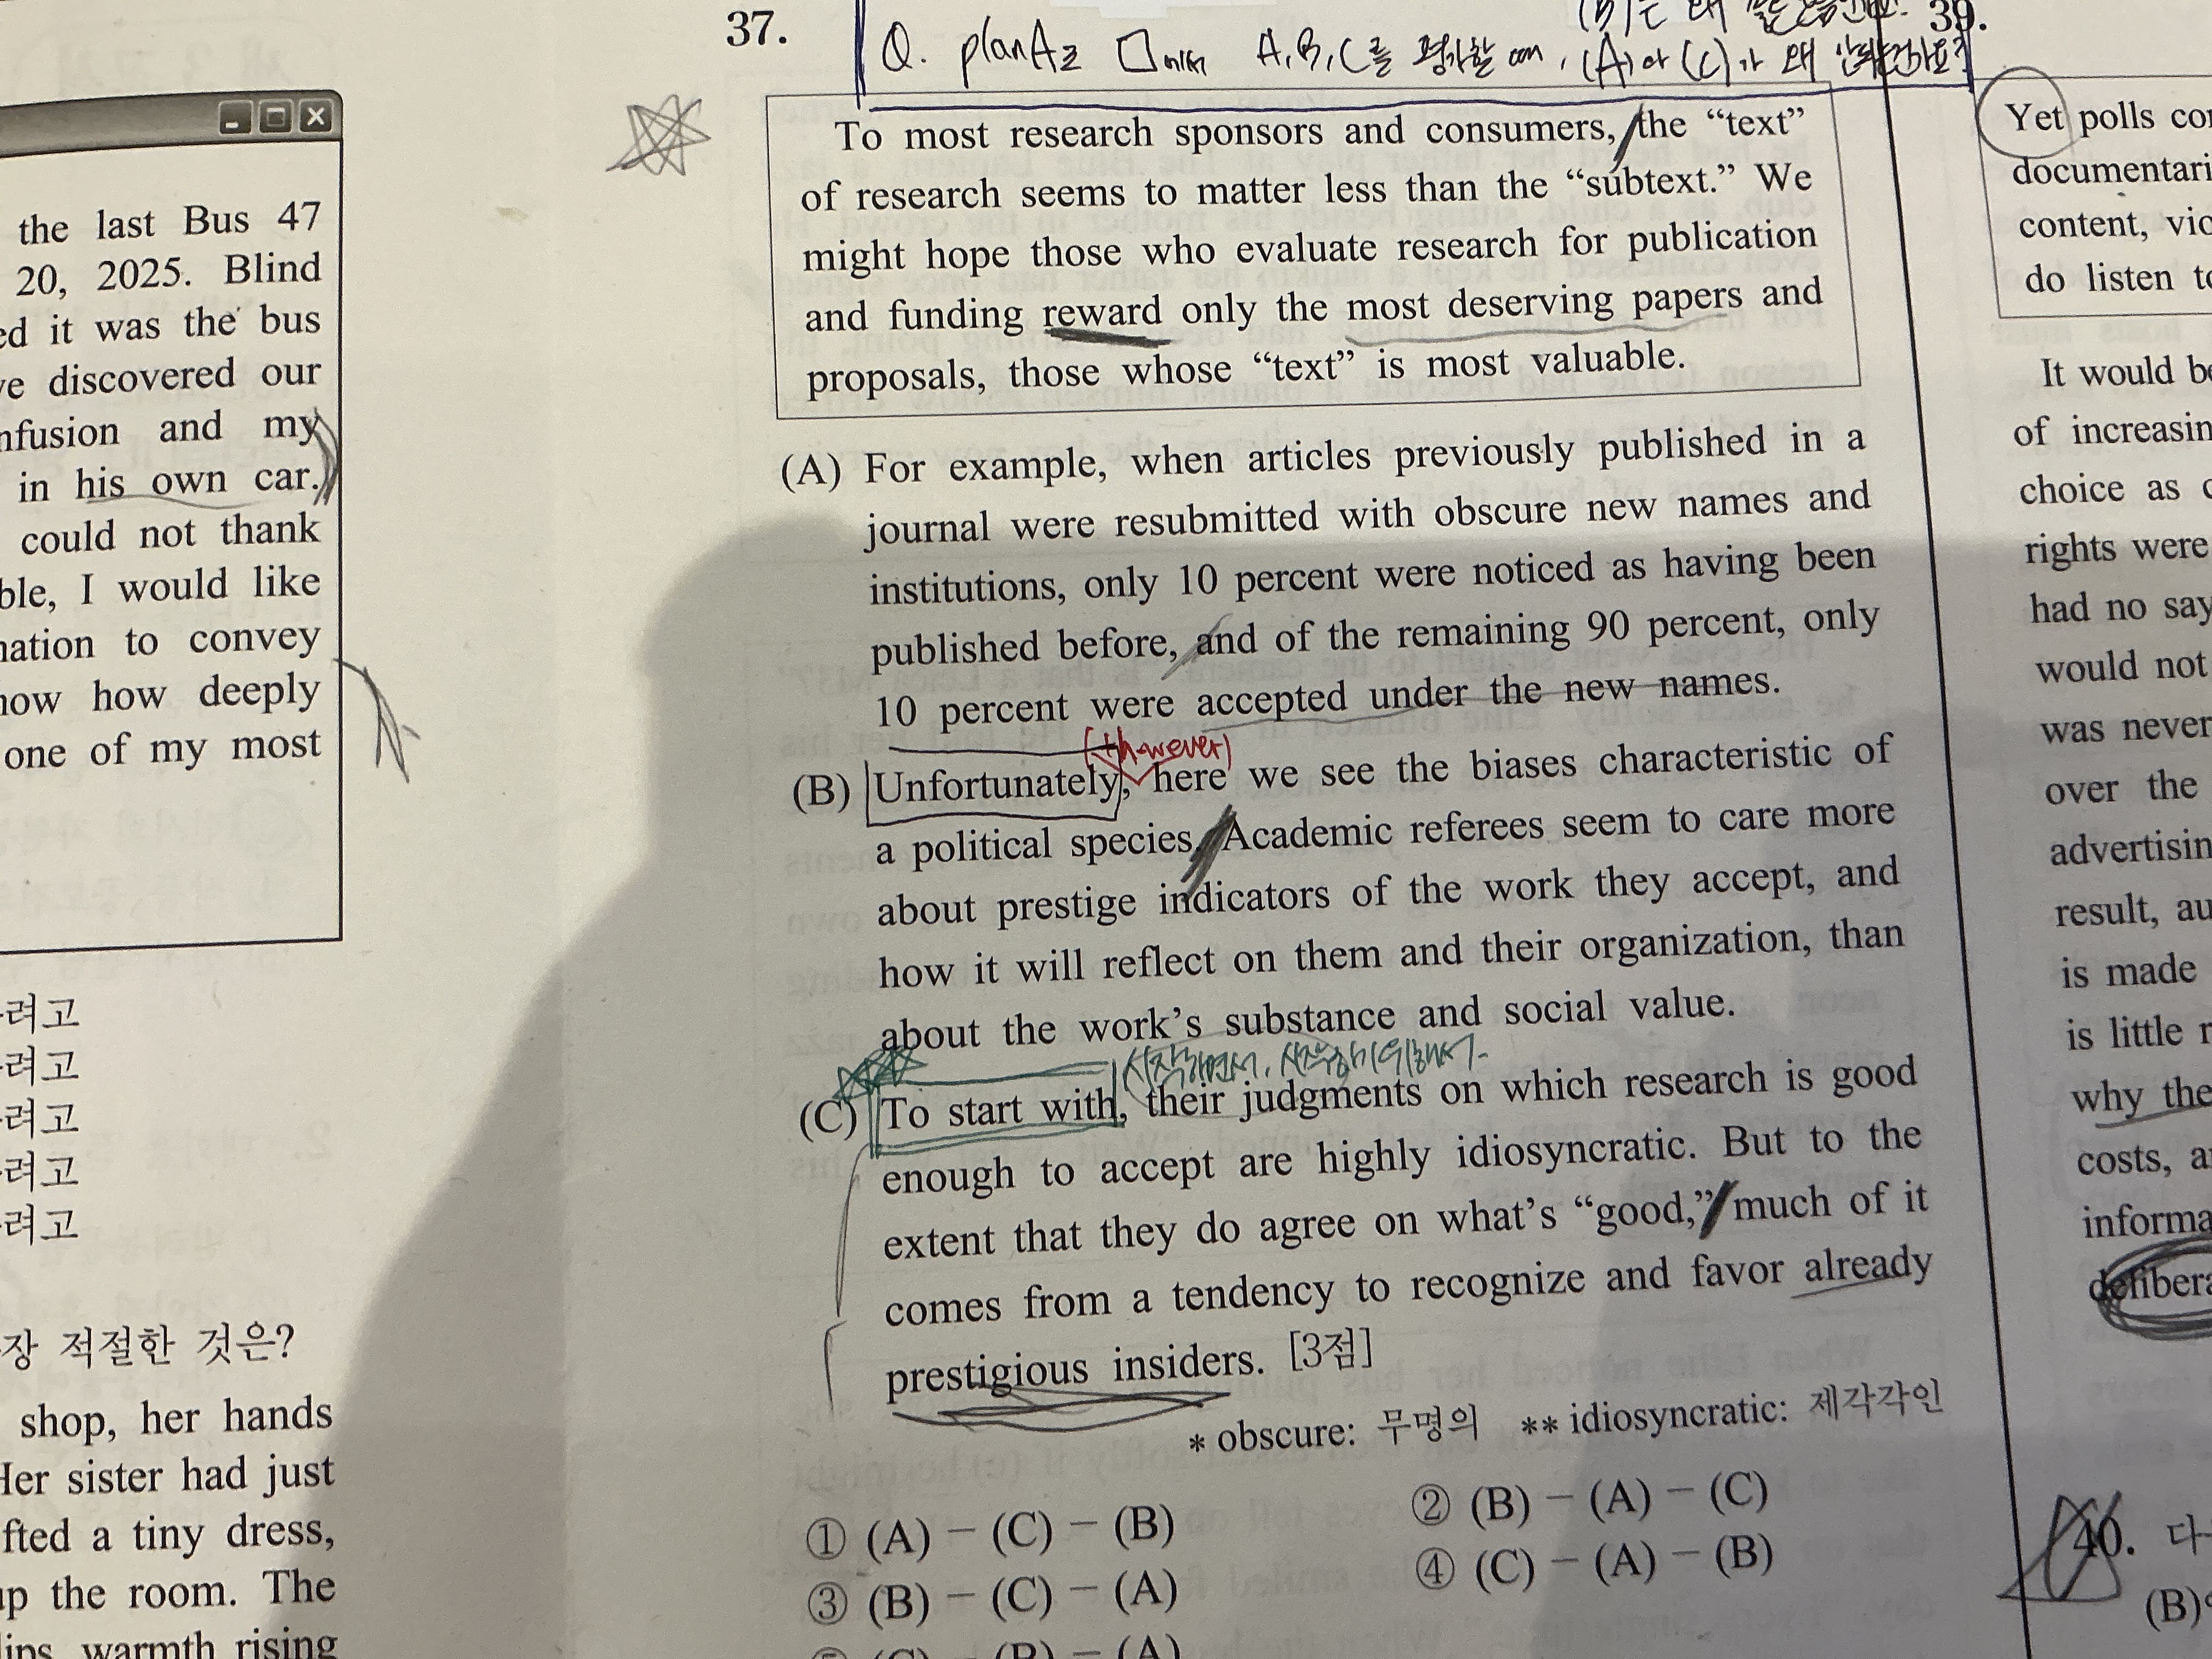 the last Bus 47
20, 2025. Blind
ed it was the bus
ve discovered our
nfusion and my
in his own car.
could not thank
ble, I would like
nation to convey
now how deeply
one of my most
려고
려고
려고
려고
려고
장 적절한 것은?
shop, her hands
Her sister had just
fted a tiny dress,
up the room. The
lips, warmth rising
37.
Q. planA로 □에서 A,B,C를 평가할 때, (A)와 (C)가 왜
To most research sponsors and consumers, the “text”
of research seems to matter less than the “subtext.” We
might hope those who evaluate research for publication
and funding reward only the most deserving papers and
proposals, those whose “text” is most valuable.
(A) For example, when articles previously published in a
journal were resubmitted with obscure new names and
institutions, only 10 percent were noticed as having been
published before, and of the remaining 90 percent, only
10 percent were accepted under the new names.
(however)
(B) Unfortunately, here we see the biases characteristic of
a political species. Academic referees seem to care more
about prestige indicators of the work they accept, and
how it will reflect on them and their organization, than
about the work’s substance and social value.
시작하면서, 시작하기위해서
(C) To start with, their judgments on which research is good
enough to accept are highly idiosyncratic. But to the
extent that they do agree on what’s “good,” much of it
comes from a tendency to recognize and favor already
prestigious insiders. [3점]
* obscure: 무명의 ** idiosyncratic: 제각각인
① (A) − (C) − (B)
② (B) − (A) − (C)
③ (B) − (C) − (A)
④ (C) − (A) − (B)
⑤ (C) − (B) − (A)
39.
Yet polls co
documentari
content, vic
do listen to
It would be
of increasin
choice as c
rights were
had no say
would not
was never
over the
advertisin
result, au
is made
is little r
why the
costs, a
informa
delibera
40. 다
(B)